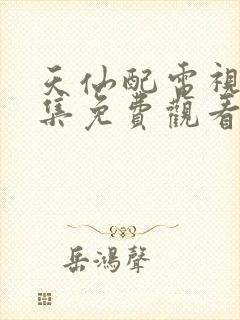 天仙配電視
集免費觀看
岳鴻聲